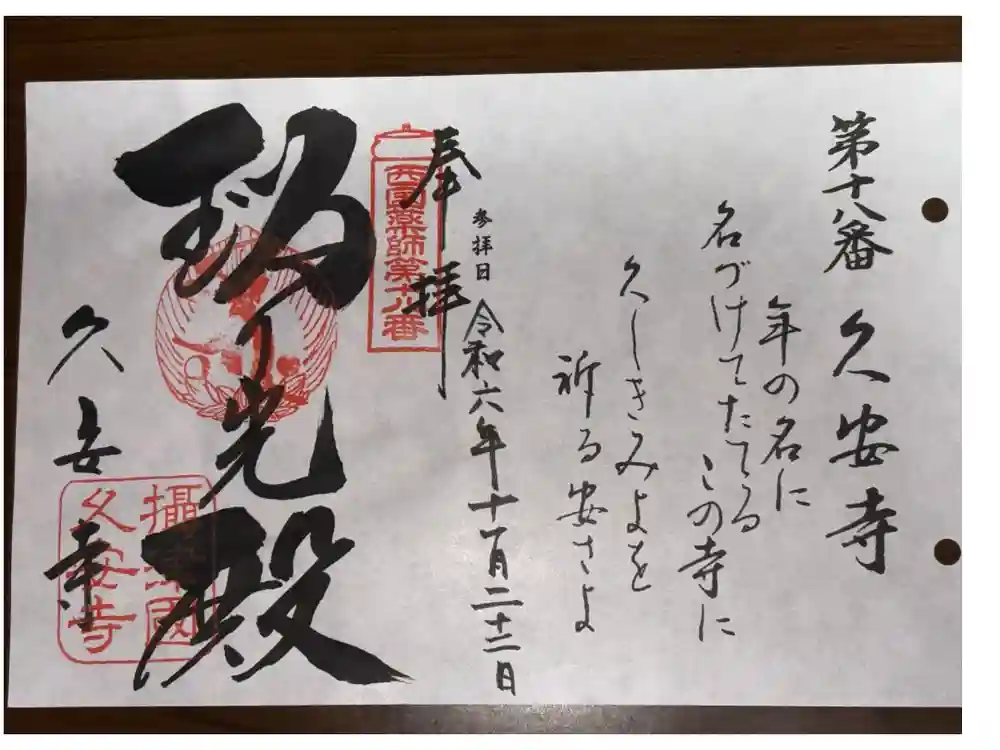 第十八番 久安寺
年の名に
名づけてたてるこの寺に
久しきみよを
祈る安さよ
参拝日 令和六年十一月二十二日
奉拝
西国薬師第十八番
瑠り光殿
久安寺
攝津國
久安寺